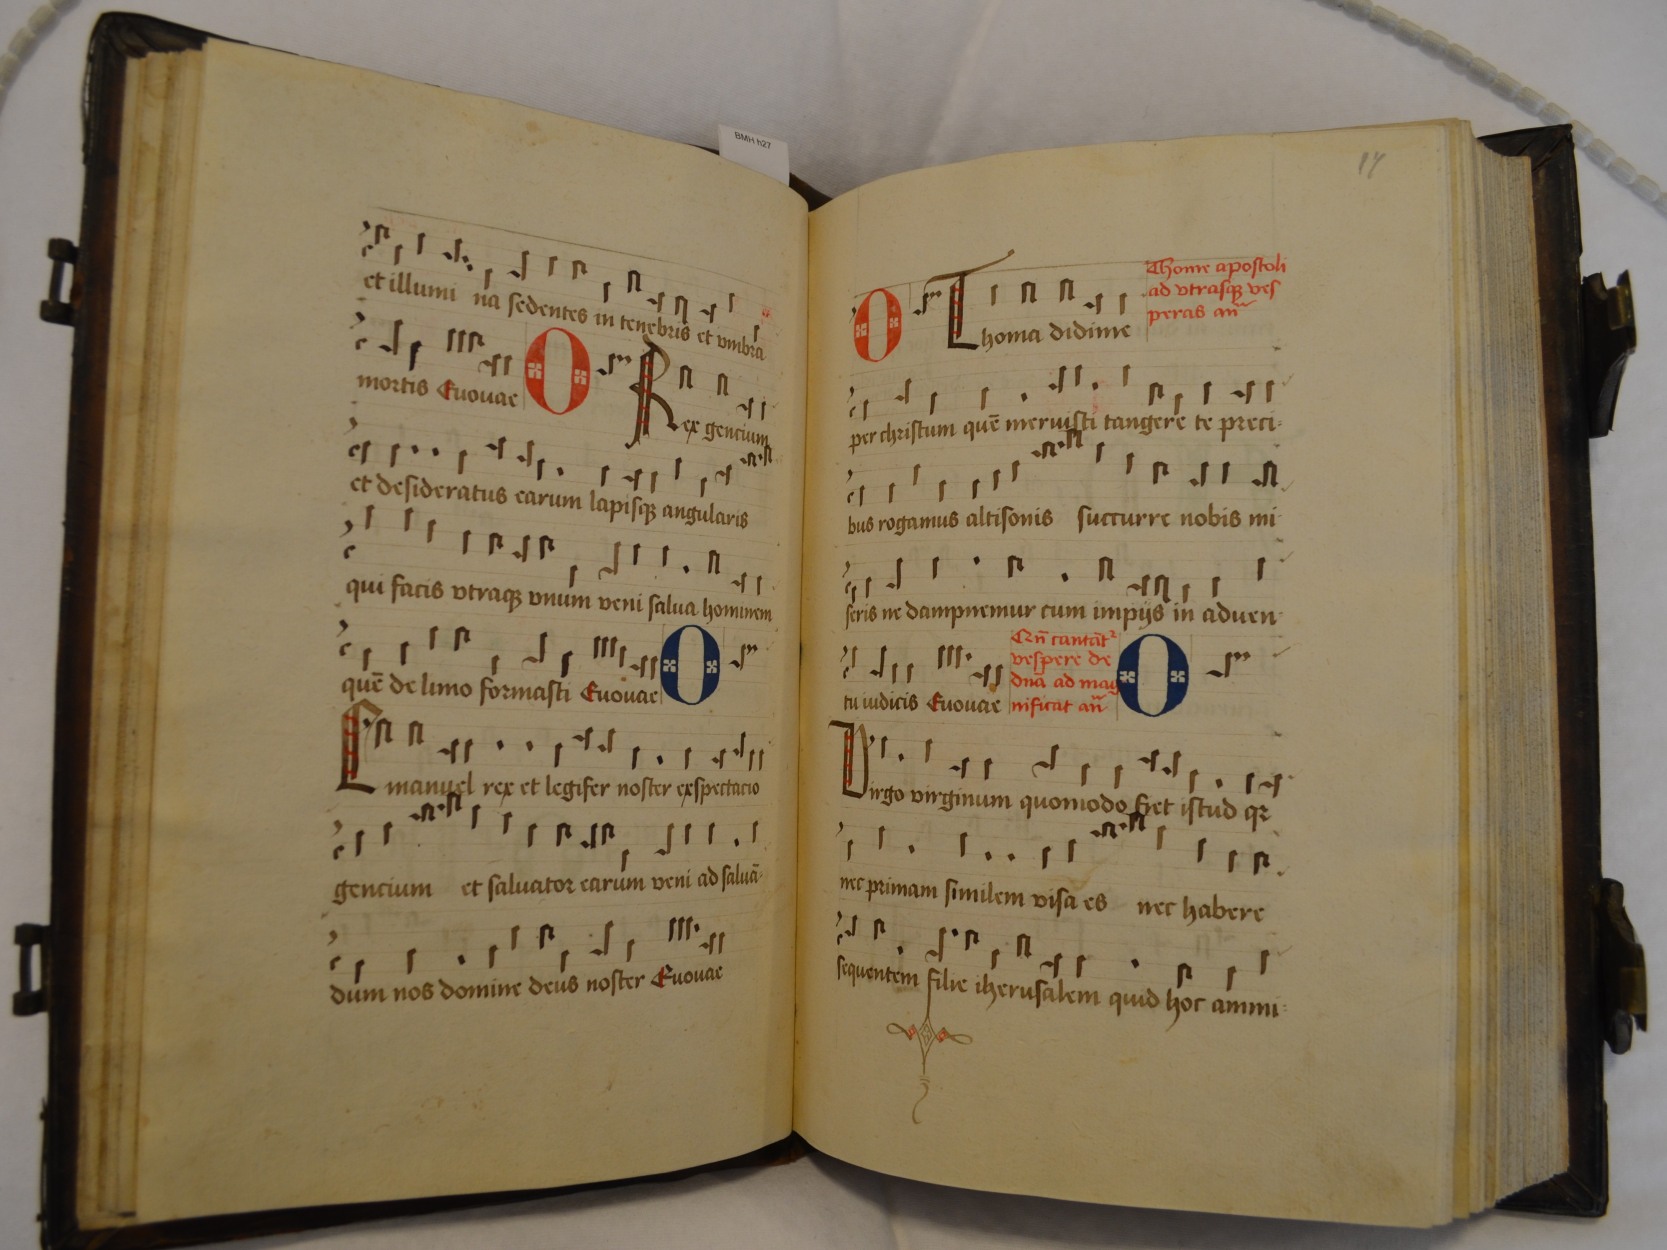 BMH h27
et illumi na sedentes in tenebris et vmbra
mortis Euouae O Rex gencium
et desideratus earum lapisqꝫ angularis
qui facis vtraqꝫ vnum veni salua hominem
quē de limo formasti Euouae O
Emanuel rex et legifer noster exspectacio
gencium et saluator earum veni ad saluā-
dum nos domine deus noster Euouae
17
O Thoma didime
Thome apostoli
ad vtrasqꝫ ves
peras an̄
per christum quē meruisti tangere te preci-
bus rogamus altisonis succurre nobis mi
seris ne dampnemur cum impijs in aduen-
tu iudicis Euouae
Qn̄ cantāt²
vespere de
dn̄a ad mag
nificat an̄
O
Virgo virginum quomodo fiet istud qr
nec primam similem visa es nec habere
sequentem filie iherusalem quid hoc ammi-